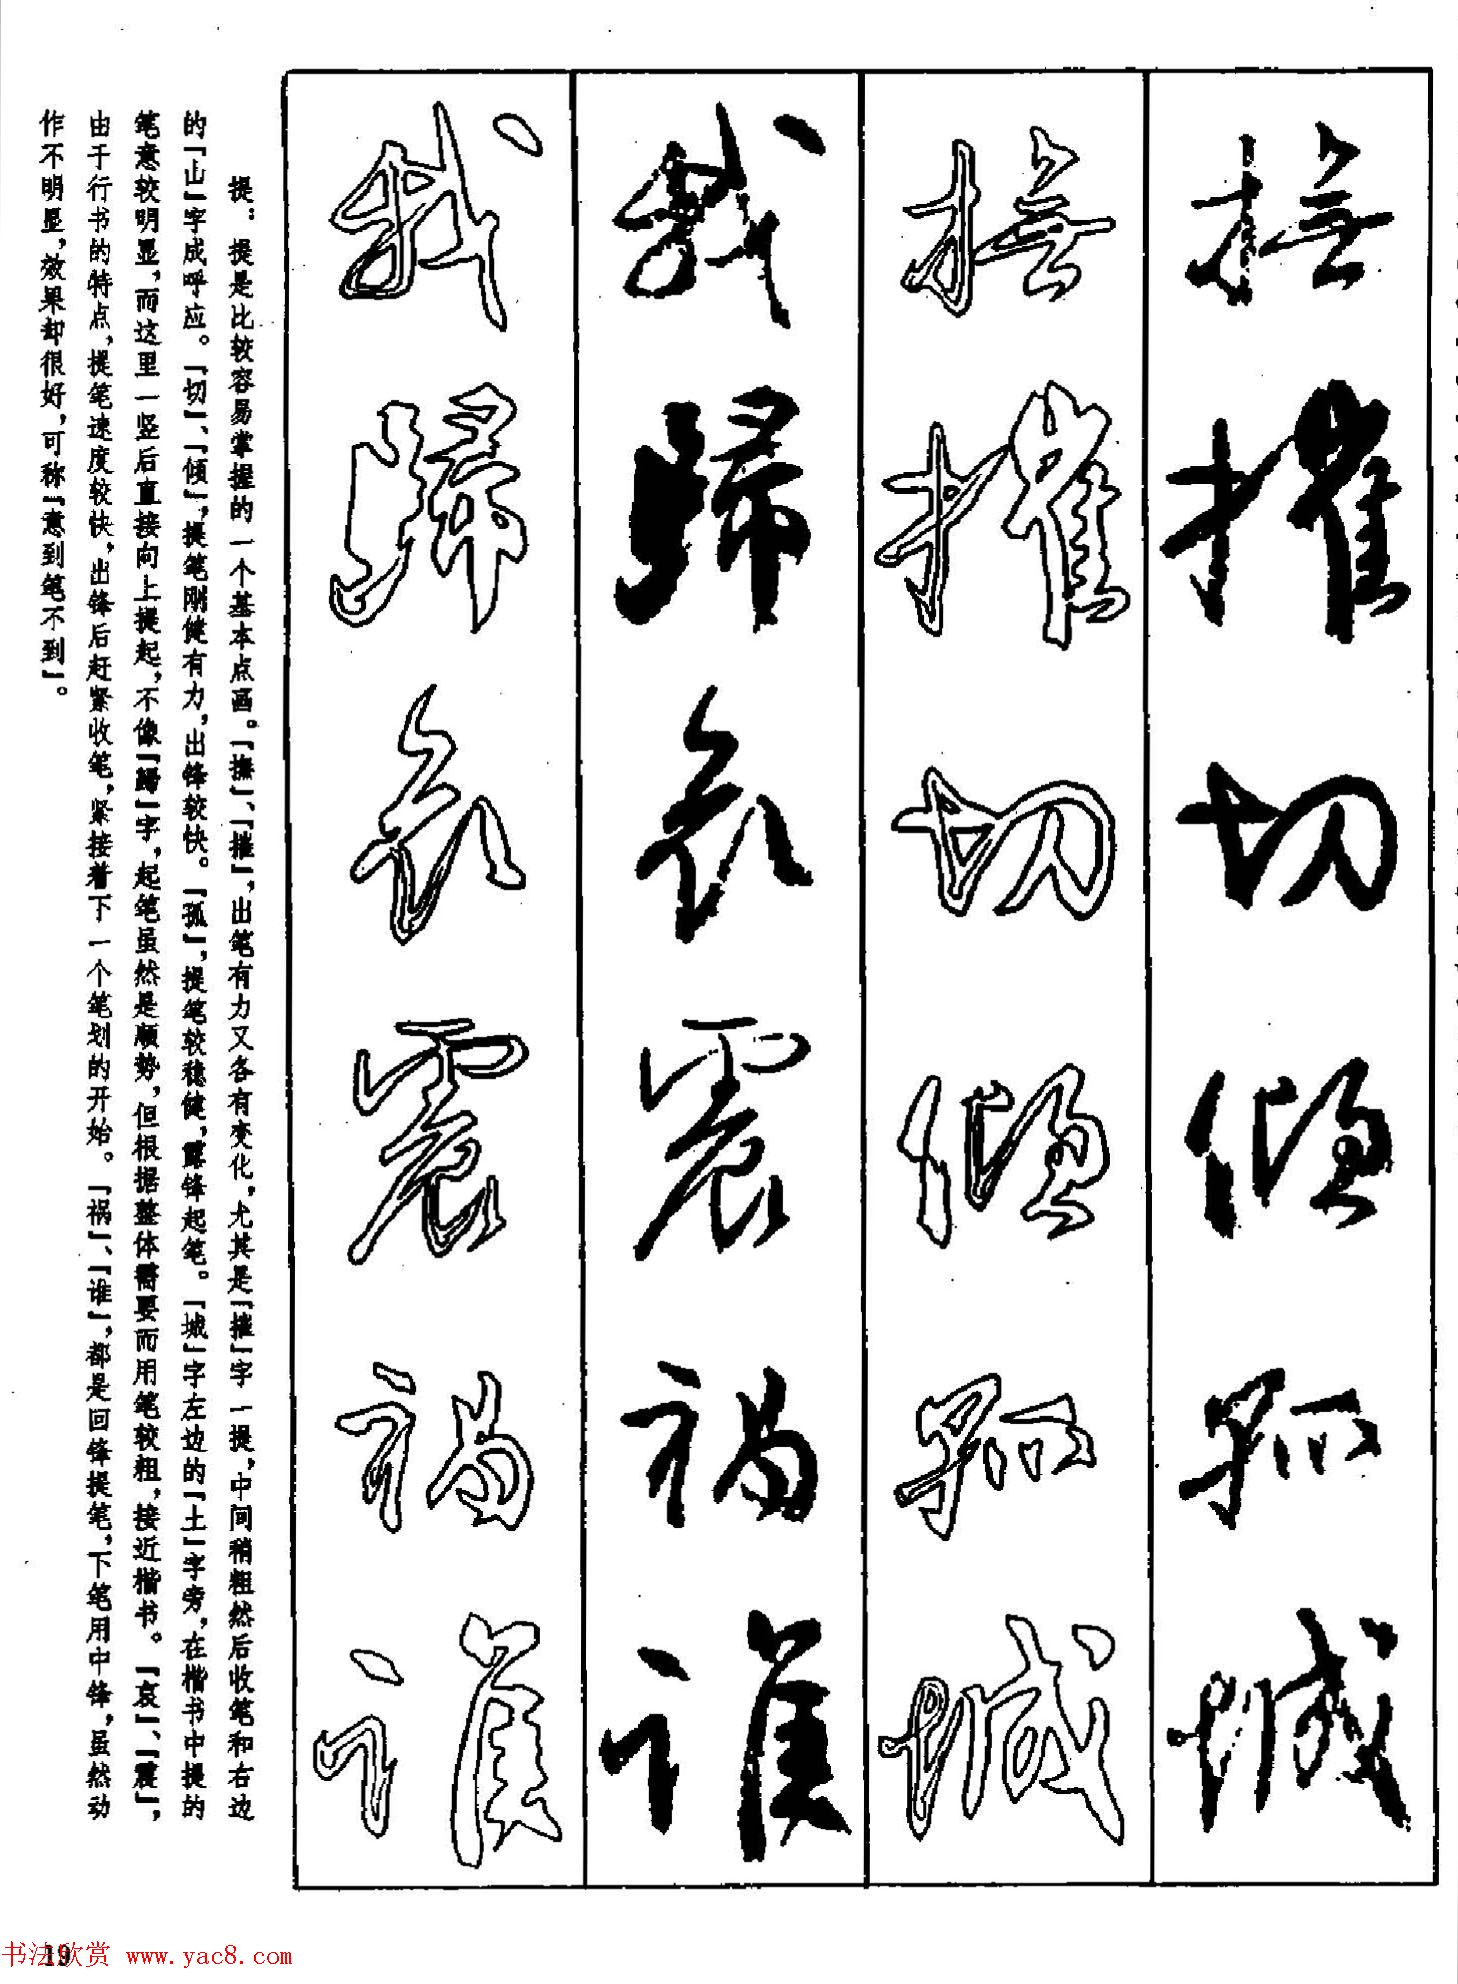 撫
摧
切
傾
孤
城
撫
摧
切
傾
孤
城
我
歸
哀
震
祸
谁
我
歸
哀
震
祸
谁
提：提是比较容易掌握的一个基本点画。「撫」、「摧」，出笔有力又各有变化，尤其是「摧」字一提，中间稍粗然后收笔和右边
的「山」字成呼应。「切」、「倾」，提笔刚健有力，出锋较快。「孤」，提笔较稳健，露锋起笔。「城」字左边的「土」字旁，在楷书中提的
笔意较明显，而这里一竖后直接向上提起，不像「歸」字，起笔虽然是顺势，但根据整体需要而用笔较粗，接近楷书。「哀」、「震」，
由于行书的特点，提笔速度较快，出锋后赶紧收笔，紧接着下一个笔划的开始。「祸」、「谁」，都是回锋提笔，下笔用中锋，虽然动
作不明显，效果却很好，可称「意到笔不到」。
19
书法欣赏 www.yac8.com